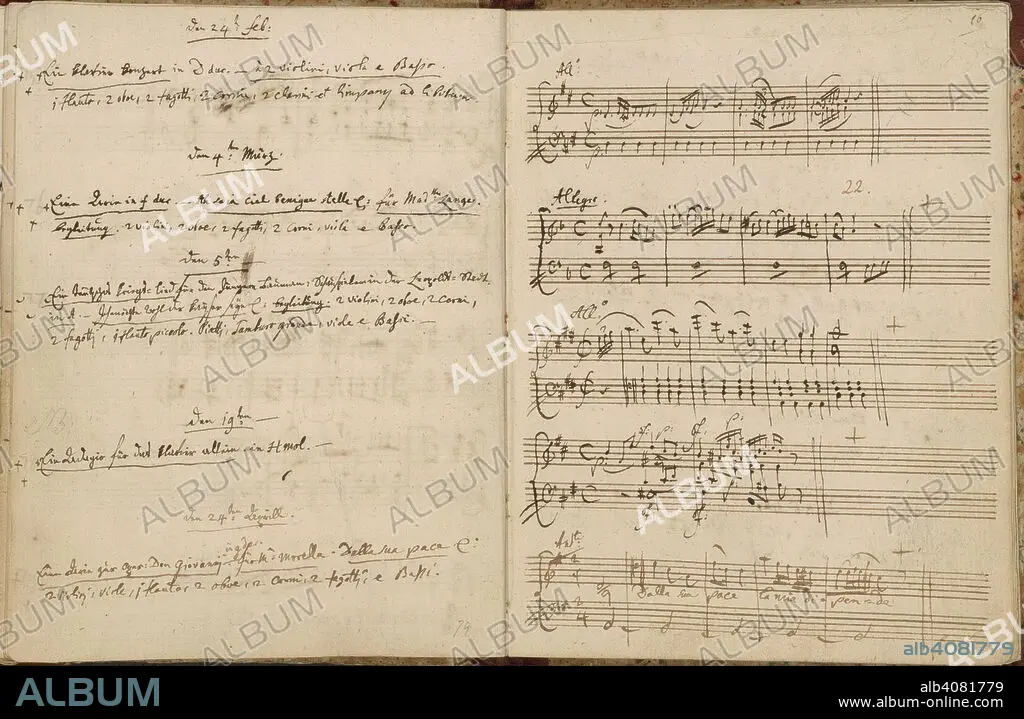 den 24t feb:
Ein klavier konzert in D dur. à 2 violini, viola e Basso.
1 flauto, 2 oboe, 2 fagotti, 2 corni, 2 clarini et Timpany ad libitum.
den 4t März.
Eine Arie in f dur. Ah se in ciel benigne stelle für Mad:me Lange.
begleitung. 2 violini, 2 oboe, 2 fagotti, 2 Corni, viola e Basso.
den 5ten
Ein teutsches kriegs-lied für den jungern Baumann, Schauspieler in der Leopold-Stadt.
in A. Ich möchte wohl der kaiser seyn begleitung. 2 violini, 2 oboe, 2 Corni,
2 fagotti, 1 flauto piccolo. Piatti, Tamburo grande, viole e Bassi.
den 19ten
Ein Adagio für das klavier allein in H mol.
den 24ten April.
Eine Aria zur oper: Don Giovanni für Mr: Morella. Dalla sua pace
2 violini, viole, 1 flauto, 2 oboe, 2 Corni, 2 fagotti, e Bassi.
79
16
All:o
22.
Allegro.
All:o
Dalla sua pace la mia di-pen-de
ALBUM
alb4081779
ALBUM
alb4081779
www.album-online.com